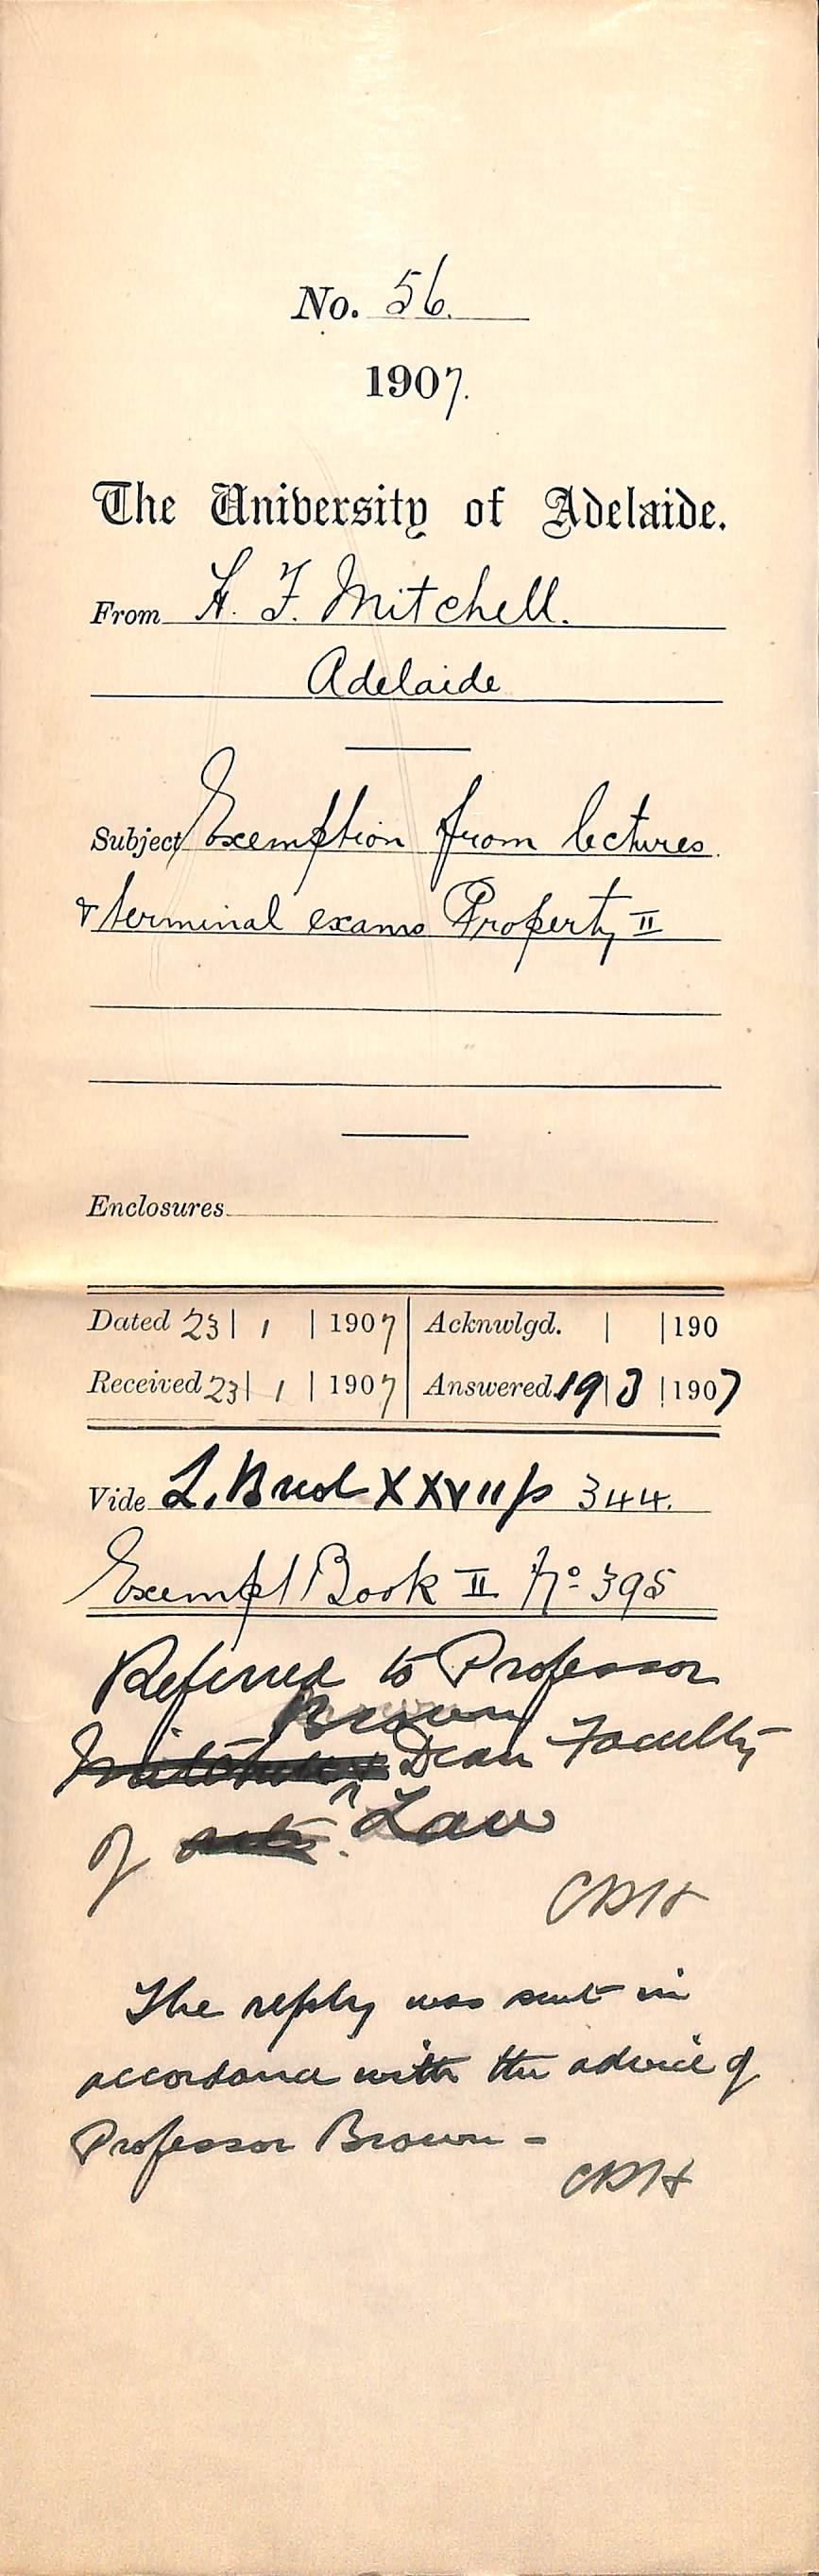 No. 56.
1907.
The University of Adelaide.
From H. F. Mitchell.
Adelaide
Subject Exemption from lectures
& terminal exams Property II
Enclosures
Dated 23 | 1 | 1907 | Acknwlgd. | | 190
Received 23 | 1 | 1907 | Answered 19 | 3 | 1907
Vide XXVII p 344.
Exempt Book II No 395
Referred to Professor
Brown
Dean Faculty
of Law
CRH
The reply was sent in
accordance with the advice of
Professor Brown -
CRH